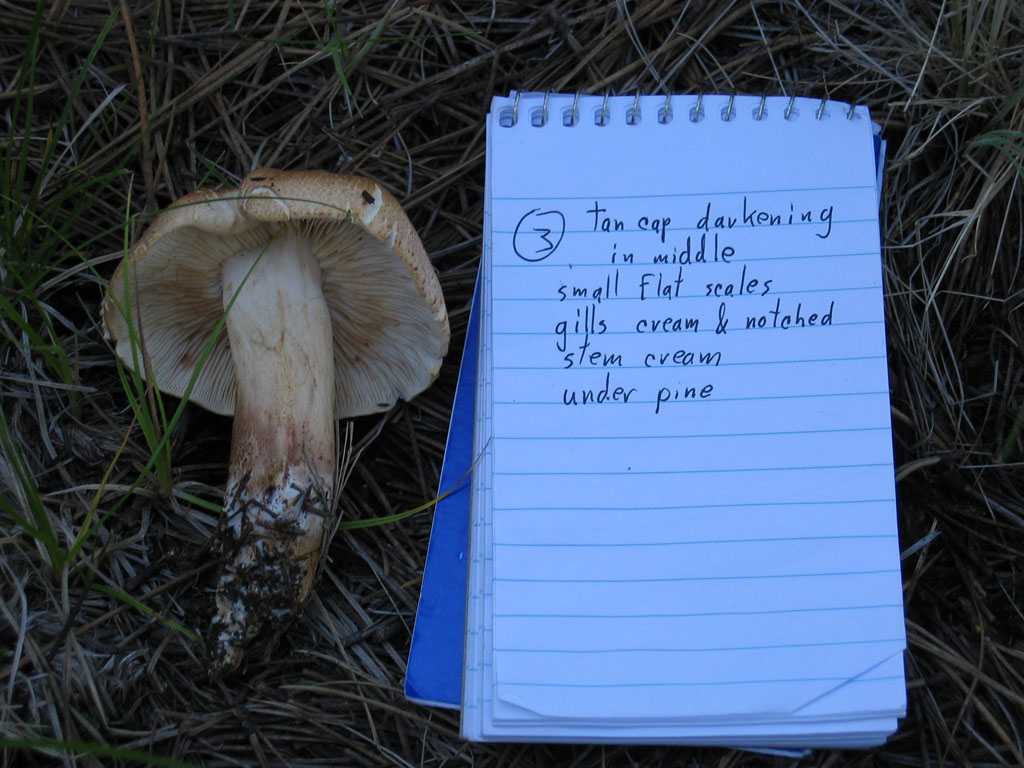 3 tan cap darkening
in middle
small flat scales
gills cream & notched
stem cream
under pine